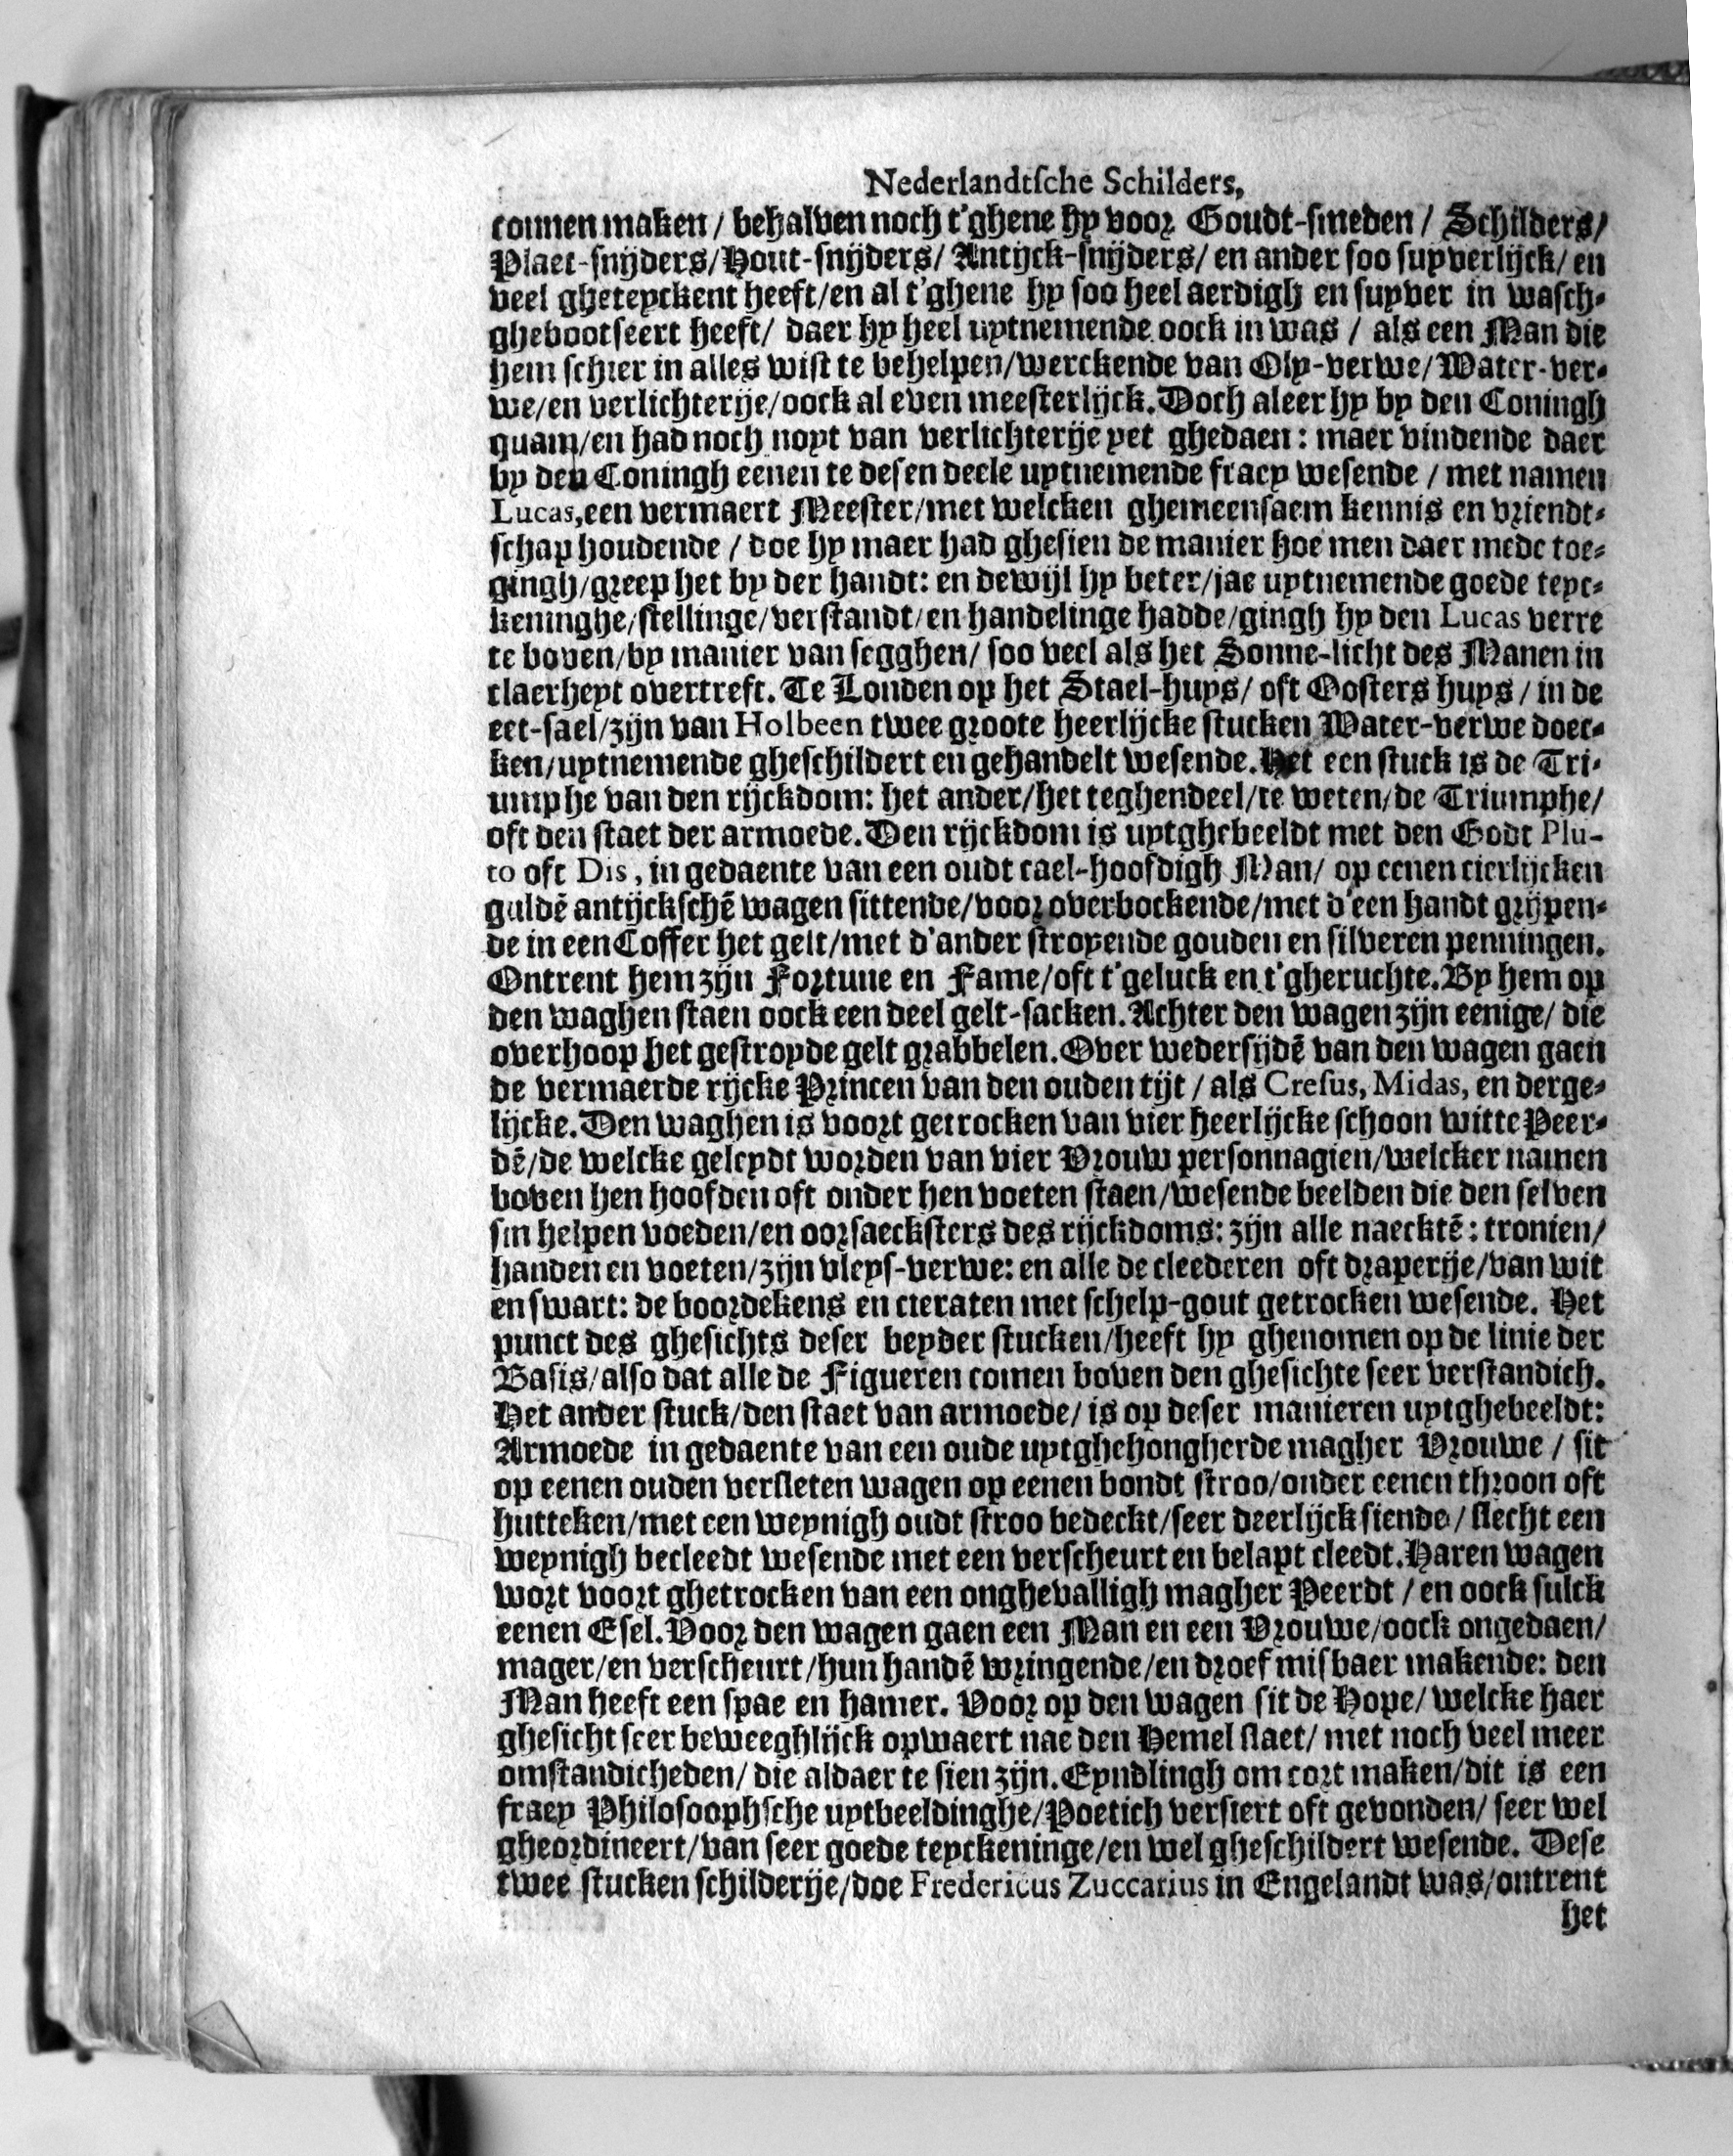 Nederlandtſche Schilders,
connen maken / behalven noch t'ghene hy voor Goudt-smeden / Schilders /
Plaet-snijders / Hout-snijders / Antijck-snijders / en ander soo suyverlijck / en
veel gheteyckent heeft / en al t'ghene hy soo heel aerdigh en suyver in wasch-
ghebootseert heeft / daer hy heel uytnemende oock in was / als een Man die
hem schier in alles wist te behelpen / werckende van Oly-verwe / Water-ver-
we / en verlichterije / oock al even meesterlijck. Doch aleer hy by den Coningh
quam / en had noch noyt van verlichterije yet ghedaen : maer vindende daer
by den Coningh eenen te desen deele uytnemende fraey wesende / met namen
Lucas, een vermaert Meester / met welcken ghemeensaem kennis en vriendt-
schap houdende / doe hy maer had ghesien de manier hoe men daer mede toe-
gingh / greep het by der handt: en dewijl hy beter / jae uytnemende goede teyc-
keninghe / stellinge / verstandt / en handelinge hadde / gingh hy den Lucas verre
te boven / by manier van segghen / soo veel als het Sonne-licht des Manen in
claerheyt overtreft. Te Londen op het Stael-huys / oft Oosters huys / in de
eet-sael / zijn van Holbeen twee groote heerlijcke stucken Water-verwe doec-
ken / uytnemende gheschildert en gehandelt wesende. Het een stuck is de Tri-
umphe van den rijckdom: het ander / het teghendeel / te weten / de Triumphe /
oft den staet der armoede. Den rijckdom is uytghebeeldt met den Godt Plu-
to oft Dis, in gedaente van een oudt cael-hoofdigh Man / op eenen cierlijcken
guldē antijckschē wagen sittende / voor overbockende / met d'een handt grijpen-
de in een Coffer het gelt / met d'ander stroyende gouden en silveren penningen.
Ontrent hem zijn Fortune en Fame / oft t'geluck en t'gheruchte. By hem op
den waghen staen oock een deel gelt-sacken. Achter den wagen zijn eenige / die
overhoop het gestroyde gelt grabbelen. Over wedersijdē van den wagen gaen
de vermaerde rijcke Princen van den ouden tijt / als Cresus, Midas, en derge-
lijcke. Den waghen is voort getrocken van vier heerlijcke schoon witte Peer-
dē / de welcke geleydt worden van vier Vrouw personnagien / welcker namen
boven hen hoofden oft onder hen voeten staen / wesende beelden die den selven
sin helpen voeden / en oorsaecksters des rijckdoms: zijn alle naecktē : tronien /
handen en voeten / zijn vleys-verwe: en alle de cleederen oft draperije / van wit
en swart: de boordekens en cieraten met schelp-gout getrocken wesende. Het
punct des ghesichts deser beyder stucken / heeft hy ghenomen op de linie der
Basis / also dat alle de Figueren comen boven den ghesichte seer verstandich.
Het ander stuck / den staet van armoede / is op deser manieren uytghebeeldt:
Armoede in gedaente van een oude uytghehongherde magher Vrouwe / sit
op eenen ouden versleten wagen op eenen bondt stroo / onder eenen throon oft
hutteken / met een weynigh oudt stroo bedeckt / seer deerlijck siende / slecht een
weynigh becleedt wesende met een verscheurt en belapt cleedt. Haren wagen
wort voort ghetrocken van een onghevalligh magher Peerdt / en oock sulck
eenen Esel. Voor den wagen gaen een Man en een Vrouwe / oock ongedaen /
mager / en verscheurt / hun handē wringende / en droef misbaer makende: den
Man heeft een spae en hamer. Voor op den wagen sit de Hope / welcke haer
ghesicht seer beweeghlijck opwaert nae den Hemel slaet / met noch veel meer
omstandicheden / die aldaer te sien zijn. Eyndlingh om cort maken / dit is een
fraey Philosoophsche uytbeeldinghe / Poetich versiert oft gevonden / seer wel
gheordineert / van seer goede teyckeninge / en wel gheschildert wesende. Dese
twee stucken schilderije / doe Fredericus Zuccarius in Engelandt was / ontrent
het